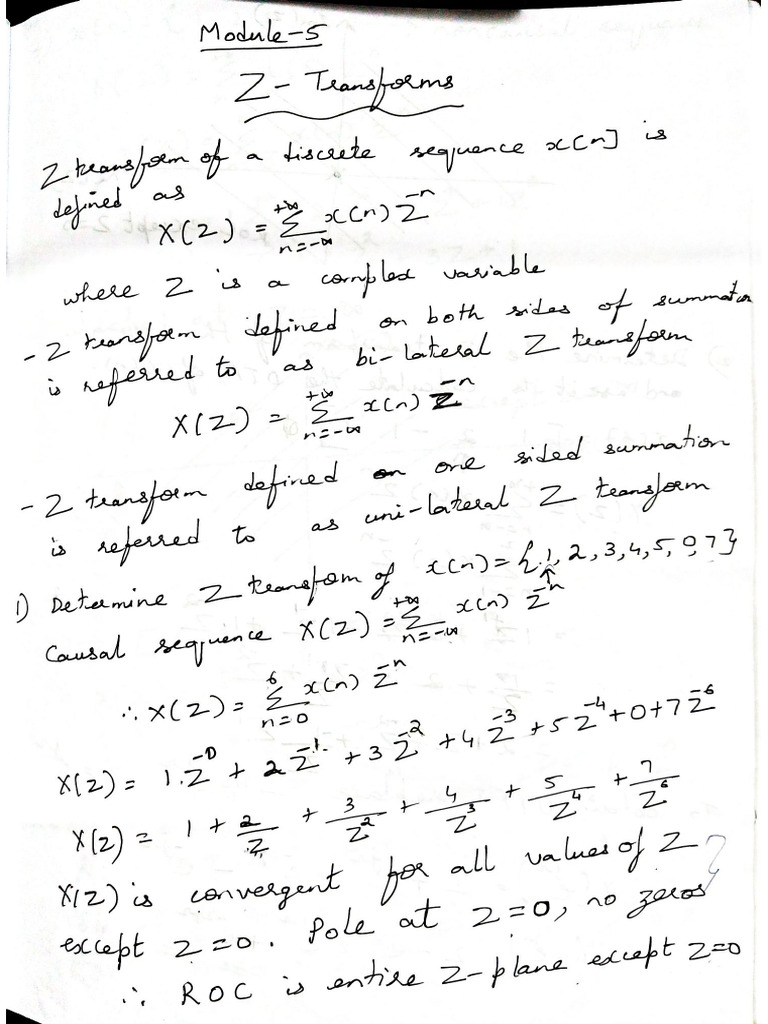 Module-5
Z- Transforms
Z transform of a discrete sequence x[n] is
defined as
X(Z) = Σ_{n=-∞}^{+∞} x(n) Z^{-n}
where Z is a complex variable
- Z transform defined on both sides of summation
is referred to as bi-lateral Z transform
X(Z) = Σ_{n=-∞}^{+∞} x(n) Z^{-n}
- Z transform defined on one sided summation
is referred to as uni-lateral Z transform
1) Determine Z transform of x(n) = {1, 2, 3, 4, 5, 0, 7}
↑
Causal sequence X(Z) = Σ_{n=-∞}^{+∞} x(n) Z^{-n}
∴ X(Z) = Σ_{n=0}^{6} x(n) Z^{-n}
X(Z) = 1.Z^{-0} + 2Z^{-1} + 3Z^{-2} + 4Z^{-3} + 5Z^{-4} + 0 + 7Z^{-6}
X(Z) = 1 + 2/Z + 3/Z^2 + 4/Z^3 + 5/Z^4 + 7/Z^6
X(Z) is convergent for all values of Z
except Z=0. Pole at Z=0, no zeros
∴ ROC is entire Z-plane except Z=0